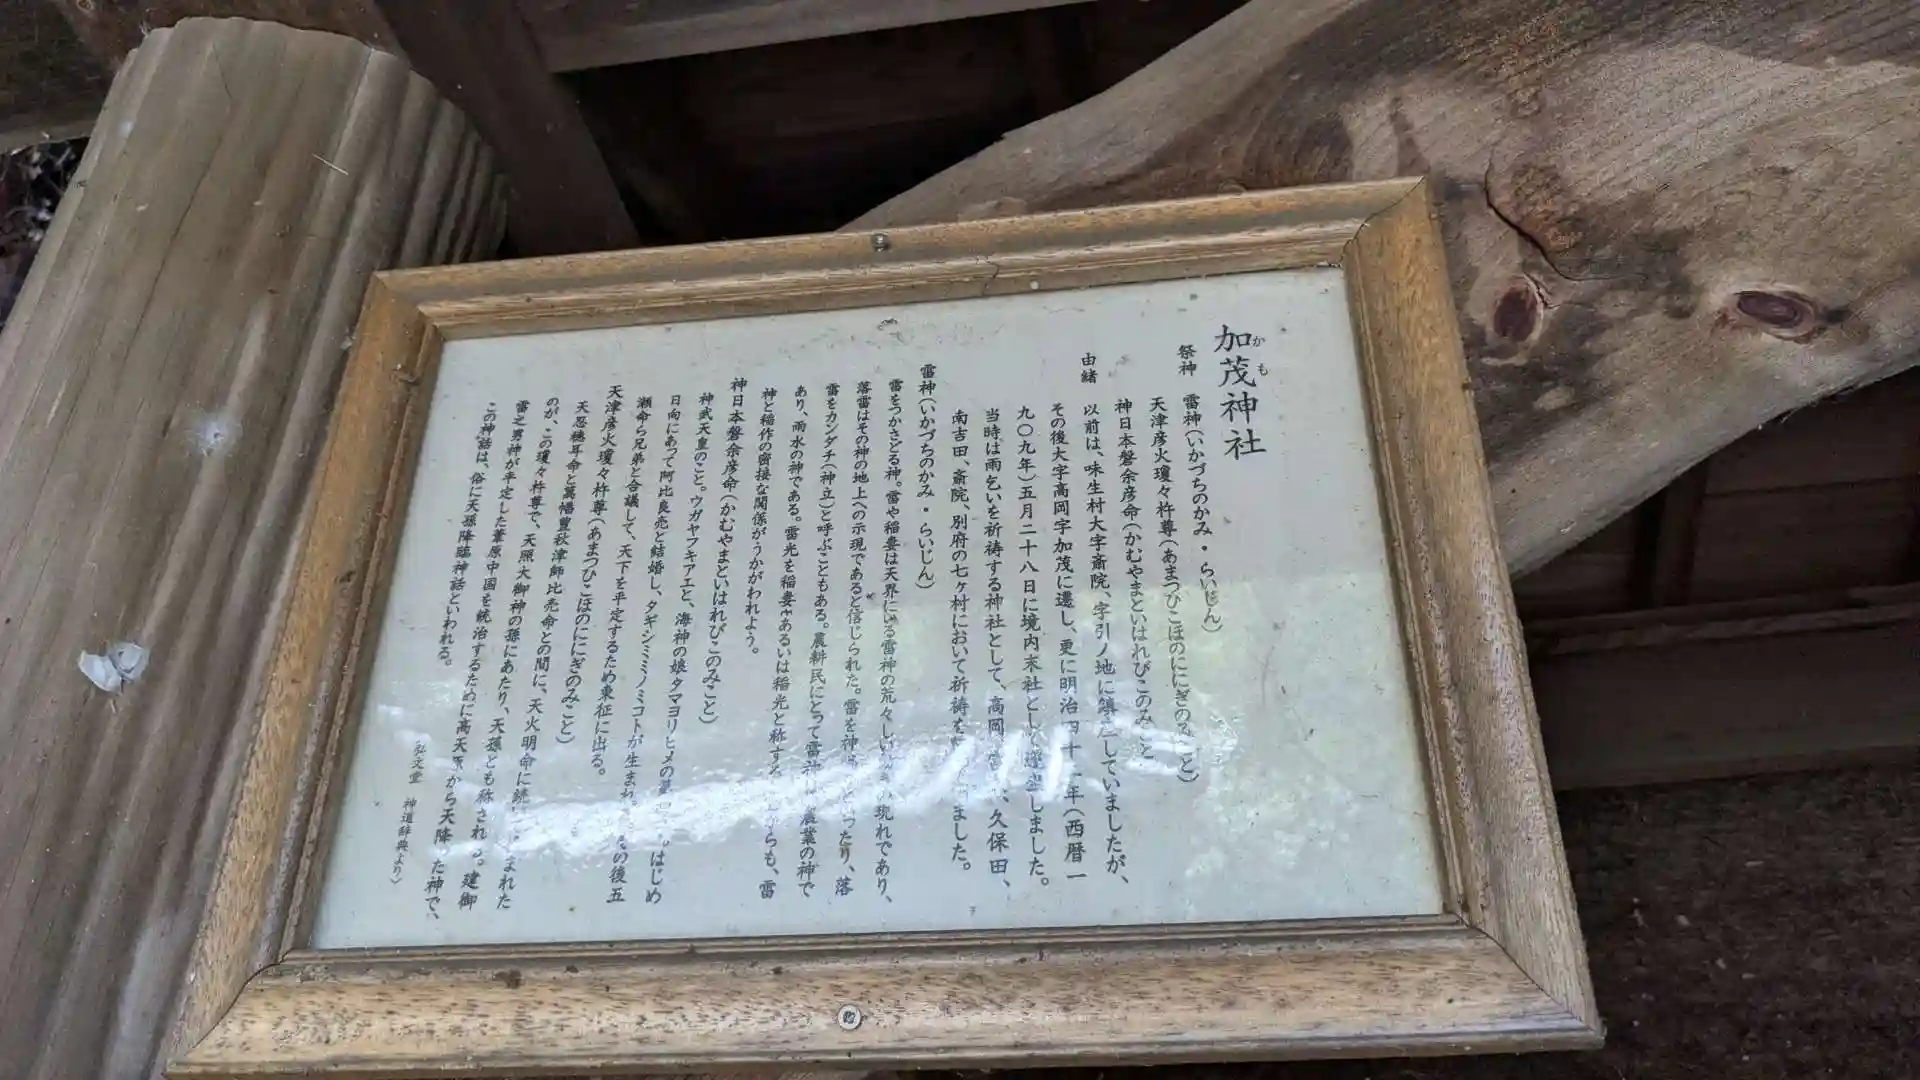 加茂神社
かも
祭神 雷神(いかづちのかみ・らいじん)
天津彦火瓊々杵尊(あまつひこほのににぎのみこと)
神日本磐余彦命(かむやまといはれびこのみこと
由緒 以前は、味生村大字斎院、字引ノ地に鎮座していましたが、
その後大字高岡字加茂に遷し、更に明治四十二年(西暦一
九〇九年)五月二十八日に境内末社として遷坐しました。
当時は雨乞いを祈祷する神社として、高岡、久保田、
南吉田、斎院、別府の七ヶ村において祈祷をました。
雷神(いかづちのかみ・らいじん)
雷をつかさどる神。雷や稲妻は天界にいる雷神の荒々しいの現れであり、
落雷はその神の地上への示現であると信じられた。雷を神といったり、落
雷をカンダチ(神立)と呼ぶこともある。農耕民にとって雷神は農業の神で
あり、雨水の神である。雷光を稲妻あるいは稲光と称するからも、雷
神と稲作の密接な関係がうかがわれよう。
神日本磐余彦命(かむやまといはれびこのみこと)
神武天皇のこと。ウガヤフキアエと、海神の娘タマヨリヒメの。はじめ
日向にあって阿比良売と結婚し、タギシミミノミコトが生まれの後五
瀬命ら兄弟と合議して、天下を平定するため東征に出る。
天津彦火瓊々杵尊(あまつひこほのににぎのみこと)
天忍穂耳命と萬幡豊秋津師比売命との間に、天火明命に続まれた
のが、この瓊々杵尊で、天照大御神の孫にあたり、天孫とも称される。建御
雷之男神が平定した葦原中国を統治するために高天原から天降った神で、
この神話は、俗に天孫降臨神話といわれる。
(弘文堂 神道辞典より)